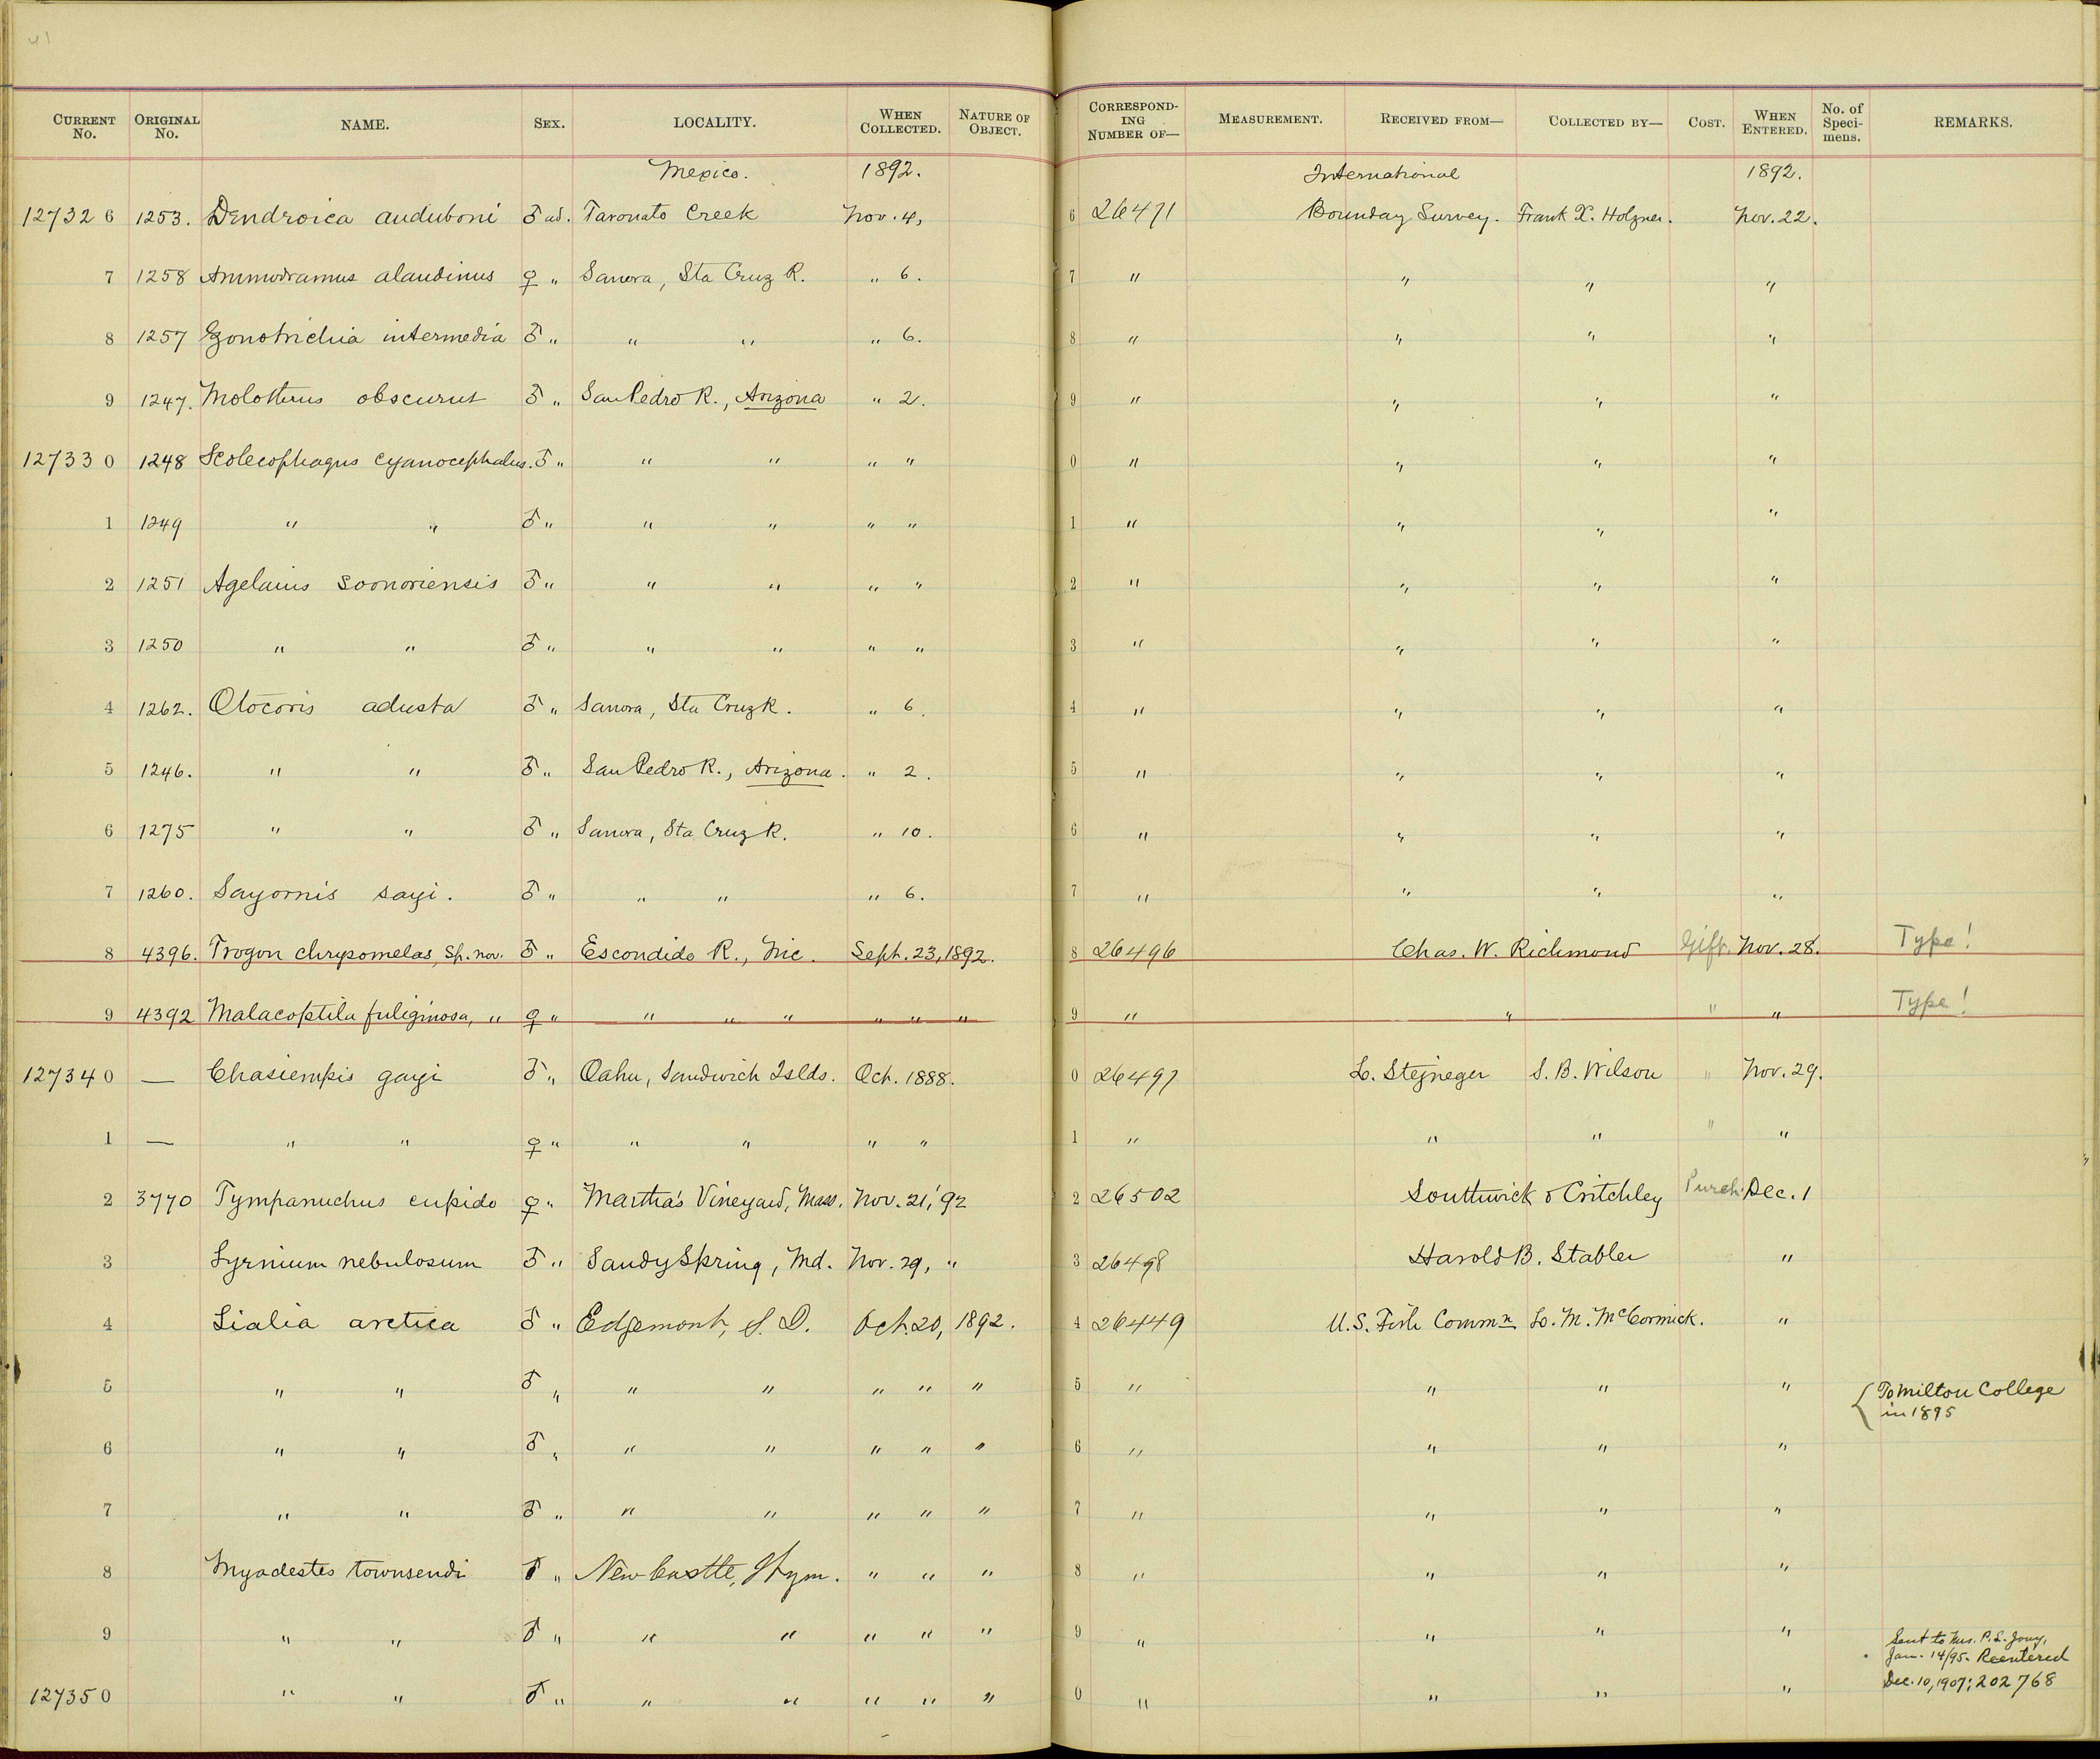 41
CURRENT No. ORIGINAL No. NAME. SEX. LOCALITY. WHEN COLLECTED. NATURE OF OBJECT. CORRESPONDING NUMBER OF— MEASUREMENT. RECEIVED FROM— COLLECTED BY— COST. WHEN ENTERED. No. of Specimens. REMARKS.
Mexico. 1892. International 1892.
127326 1253. Dendroica auduboni ♂ ad. Taronato Creek Nov. 4, 6 26471 Bounday Survey. Frank X. Holzner. Nov. 22.
7 1258 Ammodramus alaudinus ♀ " Sanora, Sta Cruz R. " 6. 7 " " " "
8 1257 Zonotrichia intermedia ♂ " " " " 6. 8 " " " "
9 1247. Molothrus obscurus ♂ " San Pedro R., Arizona " 2. 9 " " " "
127330 1248 Scolecophagus cyanocephalus. ♂ " " " " " 0 " " " "
1 1249 " " ♂ " " " " " 1 " " " "
2 1251 Agelaius soonoriensis ♂ " " " " " 2 " " " "
3 1250 " " ♂ " " " " " 3 " " " "
4 1262. Otocoris adusta ♂ " Sanora, Sta Cruz R. " 6. 4 " " " "
5 1246. " " ♂ " San Pedro R., Arizona. " 2. 5 " " " "
6 1275 " " ♂ " Sanora, Sta Cruz R. " 10. 6 " " " "
7 1260. Sayornis sayi. ♂ " " " " 6. 7 " " " "
8 4396. Trogon chrysomelas, Sp. nov. ♂ " Escondido R., Nic. Sept. 23, 1892. 8 26496 Chas. W. Richmond Gift. Nov. 28. Type!
9 4392 Malacoptila fuliginosa, " ♀ " " " " " " " 9 " " " " Type!
127340 — Chasiempis gayi ♂ " Oahu, Sandwich Islds. Oct. 1888. 0 26497 L. Stejneger S. B. Wilson " Nov. 29.
1 — " " ♀ " " " " " 1 " " " " "
2 3770 Tympanuchus cupido ♀ " Martha's Vineyard, Mass. Nov. 21, '92 2 26502 Southwick & Critchley Purch. Dec. 1
3 Syrnium nebulosum ♂ " Sandy Spring, Md. Nov. 29, " 3 26498 Harold B. Stabler "
4 Sialia arctica ♂ " Edgemont, S. D. Oct. 20, 1892. 4 26449 U.S. Fish Commn L. M. McCormick. "
5 " " ♂ " " " " " " 5 " " " " { To Milton College
in 1895
6 " " ♂ " " " " " " 6 " " " "
7 " " ♂ " " " " " " 7 " " " "
8 Myadestes townsendi ♂ " New Castle, Wym. " " " 8 " " " "
9 " " ♂ " " " " " " 9 " " " " Sent to Mrs. P. L. Jouy,
Jan. 14/95. Reentered
127350 " " ♂ " " " " " " 0 " " " " Dec. 10, 1907; 202768